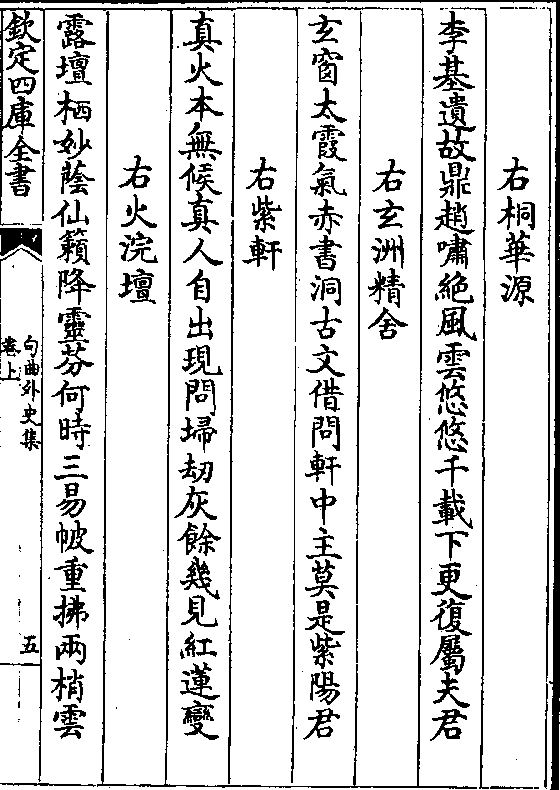 右桐華源
李基遺故鼎趙嘯絶風雲悠悠千載下更復屬夫君
右玄洲精舍
玄窗太霞氣赤書洞古文借問軒中主莫是紫陽君
右紫軒
真火本無候真人自出現問埽刼灰餘幾見紅蓮變
右火浣壇
露壇栖妙蔭仙籟降靈芬何時三易帔重拂兩梢雲
欽定四庫全書
句曲外史集
卷上
五